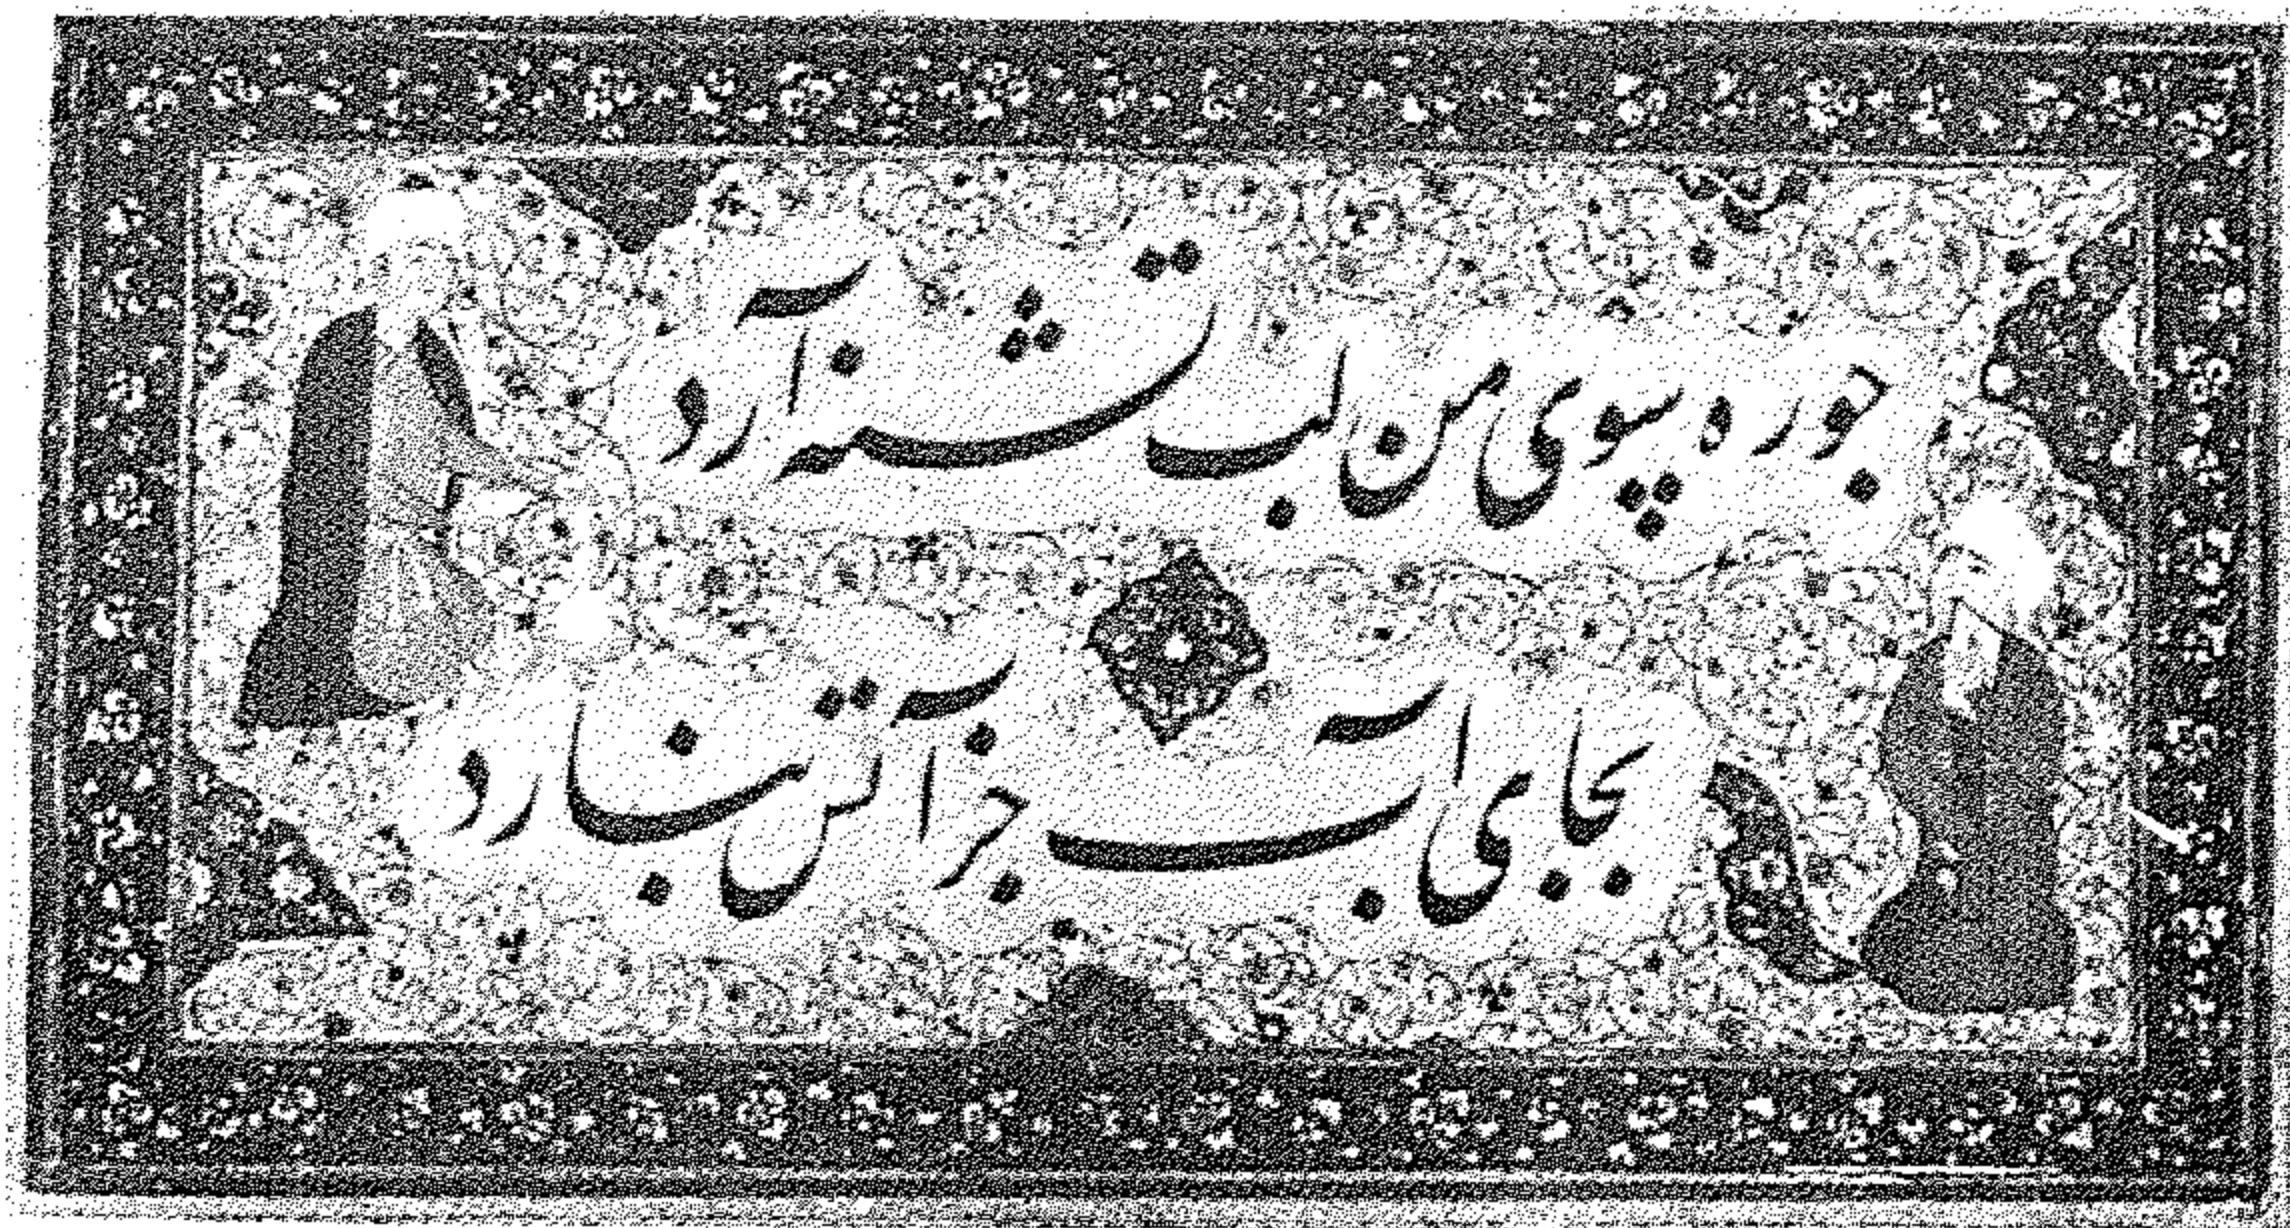 جو ره سوی من لب تشنه آرد
بجای آب جز آتش نبارد